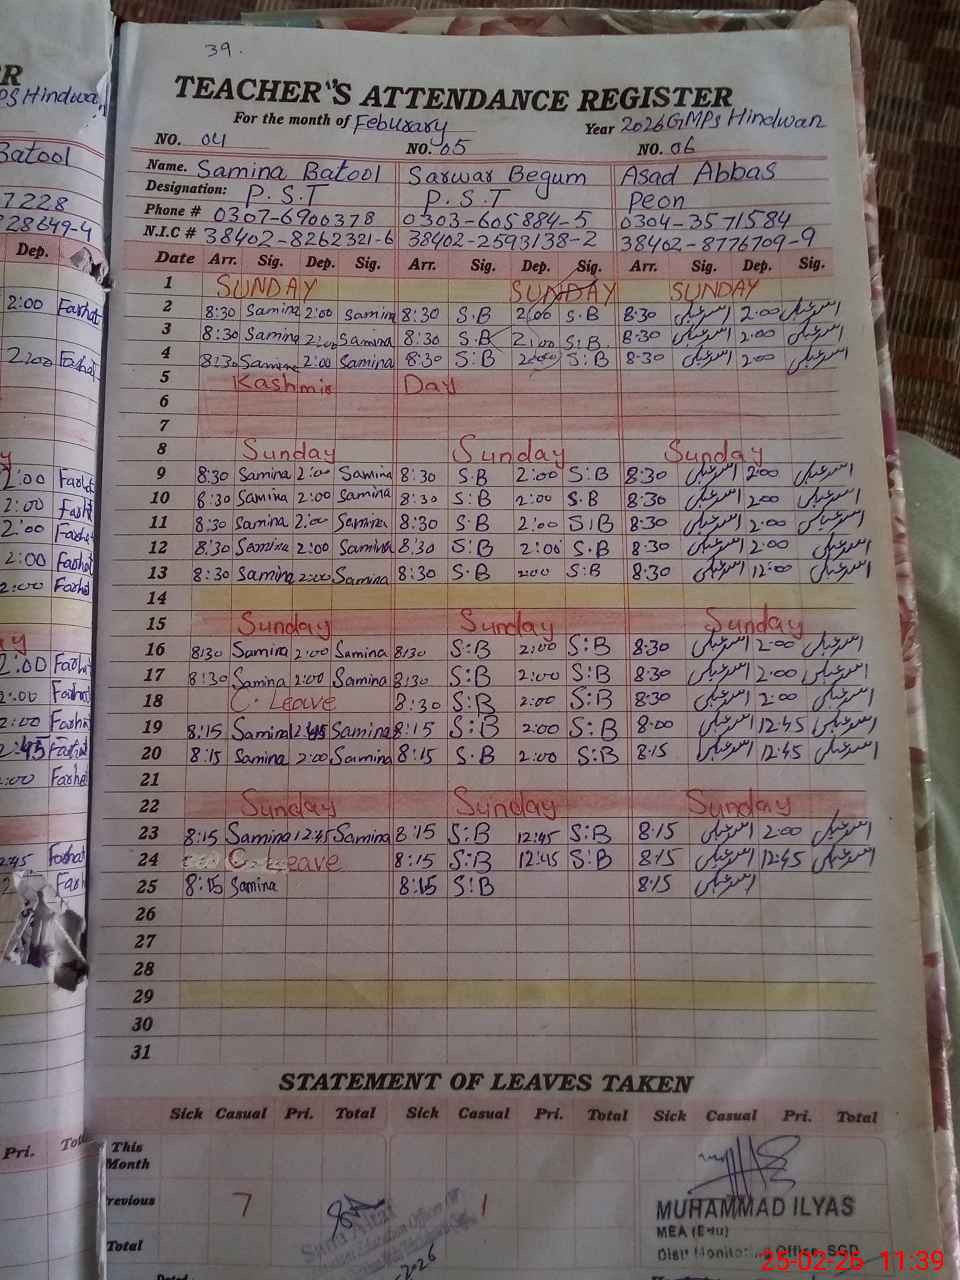 39.
TEACHER'S ATTENDANCE REGISTER
For the month of Feburary Year 2026 GMPS Hindwan
NO. 04 NO. 05 NO. 06
Name. Samina Batool Sarwar Begum Asad Abbas
Designation: P.S.T P.S.T Peon
Phone # 0307-6900378 0303-605884-5 0304-3571584
N.I.C # 38402-8262321-6 38402-2593138-2 38402-8776709-9
Date Arr. Sig. Dep. Sig. Arr. Sig. Dep. Sig. Arr. Sig. Dep. Sig.
1 SUNDAY SUNDAY SUNDAY
2 8:30 Samina 2:00 Samina 8:30 S.B 2:00 S.B 8:30 اسد عباس 2:00 اسد عباس
3 8:30 Samina 2:00 Samina 8:30 S.B 2:00 S:B 8:30 اسد عباس 2:00 اسد عباس
4 8:30 Samina 2:00 Samina 8:30 S:B 2:00 S:B 8:30 اسد عباس 2:00 اسد عباس
5 Kashmir Day
6
7
8 Sunday Sunday Sunday
9 8:30 Samina 2:00 Samina 8:30 S.B 2:00 S:B 8:30 اسد عباس 2:00 اسد عباس
10 8:30 Samina 2:00 Samina 8:30 S:B 2:00 S.B 8:30 اسد عباس 2:00 اسد عباس
11 8:30 Samina 2:00 Samina 8:30 S.B 2:00 S:B 8:30 اسد عباس 2:00 اسد عباس
12 8:30 Samina 2:00 Samina 8:30 S:B 2:00 S.B 8:30 اسد عباس 2:00 اسد عباس
13 8:30 Samina 2:00 Samina 8:30 S.B 2:00 S:B 8:30 اسد عباس 12:00 اسد عباس
14
15 Sunday Sunday Sunday
16 8:30 Samina 2:00 Samina 8:30 S:B 2:00 S:B 8:30 اسد عباس 2:00 اسد عباس
17 8:30 Samina 2:00 Samina 8:30 S:B 2:00 S:B 8:30 اسد عباس 2:00 اسد عباس
18 C. Leave 8:30 S:B 2:00 S:B 8:30 اسد عباس 2:00 اسد عباس
19 8:15 Samina 12:45 Samina 8:15 S:B 2:00 S:B 8:00 اسد عباس 12:45 اسد عباس
20 8:15 Samina 2:00 Samina 8:15 S.B 2:00 S:B 8:15 اسد عباس 12:45 اسد عباس
21
22 Sunday Sunday Sunday
23 8:15 Samina 12:45 Samina 8:15 S:B 12:45 S:B 8:15 اسد عباس 2:00 اسد عباس
24 C. Leave 8:15 S:B 12:45 S:B 8:15 اسد عباس 12:45 اسد عباس
25 8:15 Samina 8:15 S:B 8:15 اسد عباس
26
27
28
29
30
31
STATEMENT OF LEAVES TAKEN
Sick Casual Pri. Total Sick Casual Pri. Total Sick Casual Pri. Total
This Month
Previous 7 1
Total
MUHAMMAD ILYAS
MEA (Edu)
Distt Monitoring Office, SGD
2026
25-02-26 11:39
R
PS Hindwan
Batool
7228
28649-4
Dep.
2:00 Farhat
2:00 Farhat
2:00 Farhat
2:00 Farhat
2:00 Farhat
2:00 Farhat
2:00 Farhat
2:00 Farhat
2:00 Farhat
2:00 Farhat
2:45 Farhat
2:00 Farhat
2:45 Farhat
Pri.